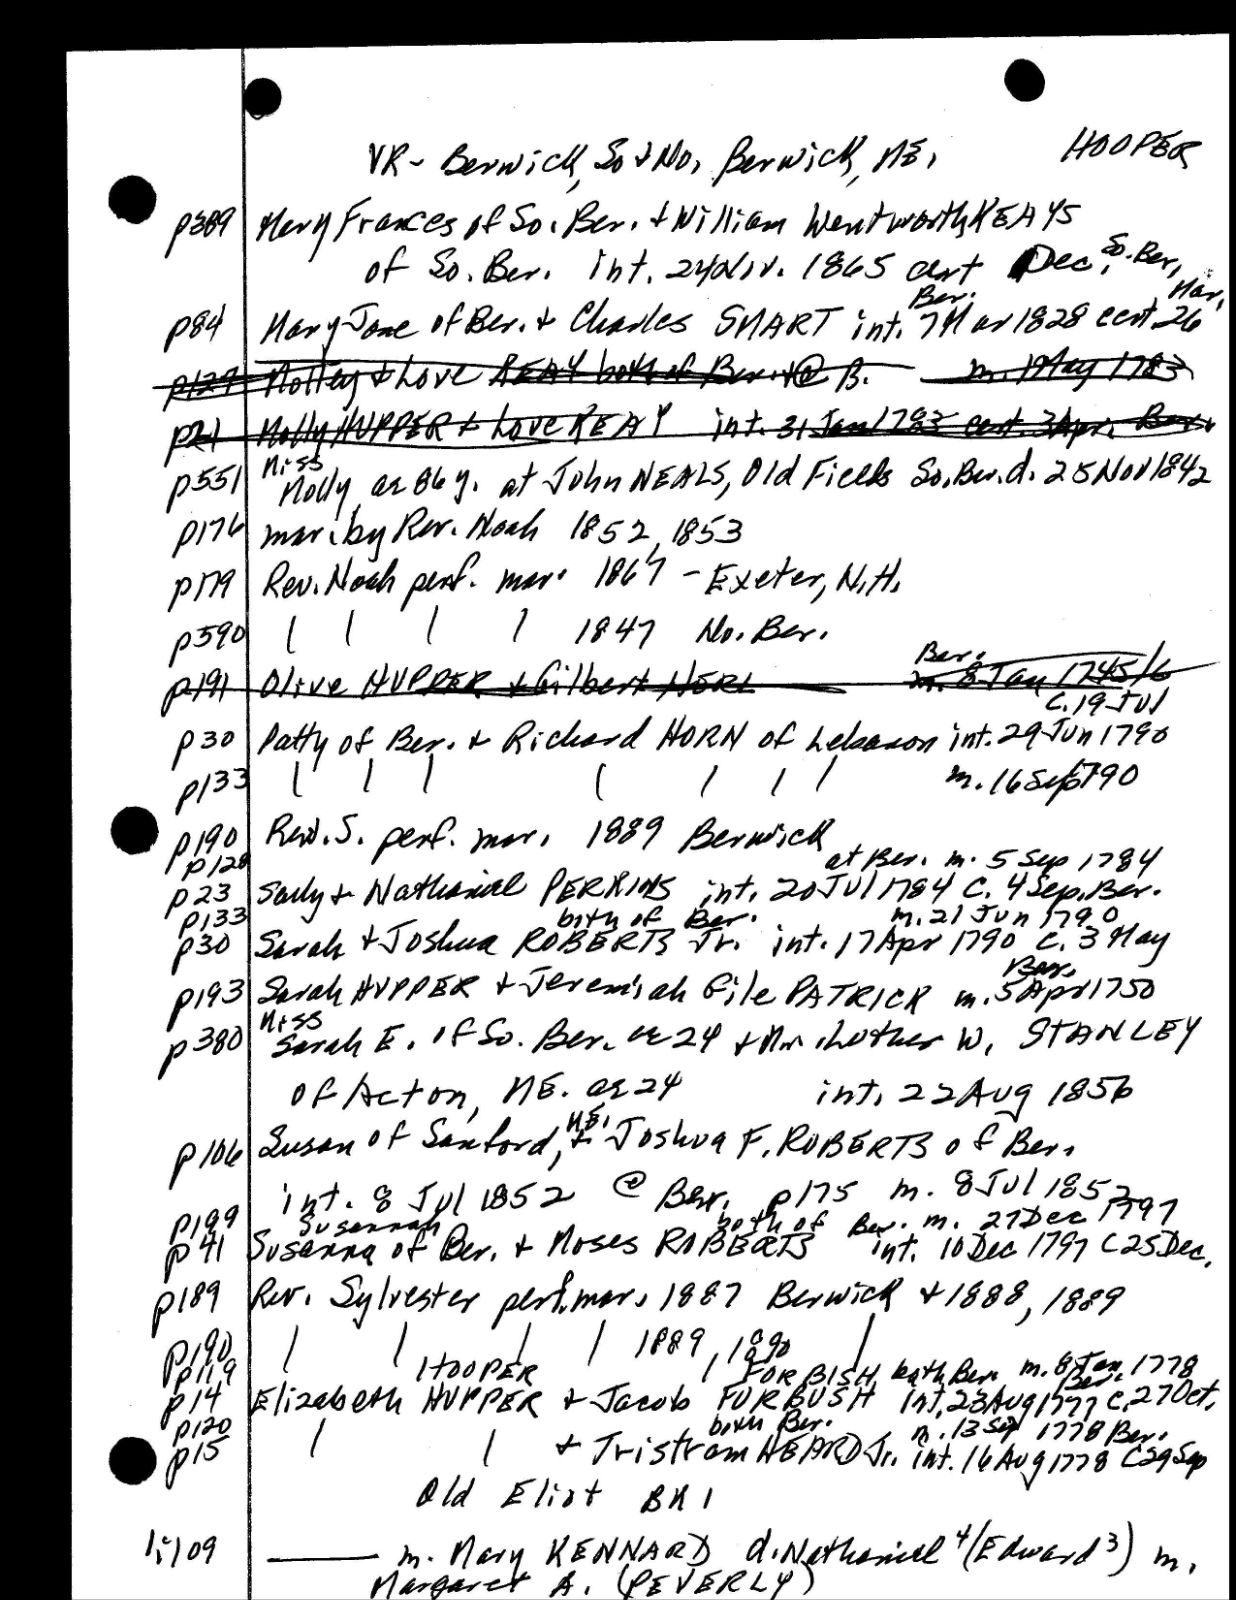 VR - Berwick, So & No, Berwick, ME, HOOPER
p389 Mary Frances of So. Ber. & William Wentworth KEAYS
of So. Ber. int. 24 Nov. 1865 cert Dec, So. Ber,
Ber. Mar,
p84 Mary Jane of Ber. & Charles SMART int. 7 Mar 1828 cert. 26
p127 Molley & Love KEAY both of Ber. @ B. m. 1 May 1783
p21 Molly HUPPER & Love KEAY int. 31 Jan 1783 cert. 3 Apr. Ber.
Miss
p551 Molly ae 86 y. at John NEALS, Old Fields So. Ber. d. 25 Nov 1842
p176 mar. by Rev. Noah 1852, 1853
p179 Rev. Noah perf. mar. 1867 - Exeter, N.H.
p590 | | | | 1847 No. Ber.
Ber.
p191 Olive HUPPER & Gilbert HORL m. 8 Jan 1745/6
C. 19 Jul
p30 Patty of Ber. & Richard HORN of Lebanon int. 29 Jun 1790
p133 | | | | | | | m. 16 Sep 1790
p190 Rev. S. perf. mar. 1889 Berwick
p128 at Ber. m. 5 Sep 1784
p23 Sally & Nathaniel PERKINS int. 20 Jul 1784 C. 4 Sep. Ber.
p133 both of Ber. m. 21 Jun 1790
p30 Sarah & Joshua ROBERTS Jr. int. 17 Apr 1790 C. 3 May
Ber.
p193 Sarah HUPPER & Jeremiah Gile PATRICK m. 5 Apr 1750
Miss
p380 Sarah E. of So. Ber. ae 24 & Mr. Luther W. STANLEY
of Acton, ME. ae 24 int. 22 Aug 1856
p106 Susan of Sanford, ME. & Joshua F. ROBERTS of Ber.
int. 8 Jul 1852 @ Ber. p175 m. 8 Jul 1852
p199 Susannah both of Ber. m. 27 Dec 1797
p41 Susanna of Ber. & Moses ROBERTS int. 10 Dec 1797 C 25 Dec.
p189 Rev. Sylvester perf. mar. 1887 Berwick & 1888, 1889
p190 | | | | 1889, 1890 |
p119 HOOPER FORBISH, both Ber. m. 8 Jan, 1778
Ber.
p14 Elizabeth HUPPER & Jacob FURBUSH int. 23 Aug 1777 C. 27 Oct.
p120 both Ber. m. 13 Sep 1778 Ber.
p15 | | & Tristram HEARD Jr. int. 16 Aug 1778 C 29 Sep
Old Eliot BK 1
1:109 ——— m. Mary KENNARD d. Nathaniel 4 (Edward 3) m.
Margaret A. (PEVERLY)